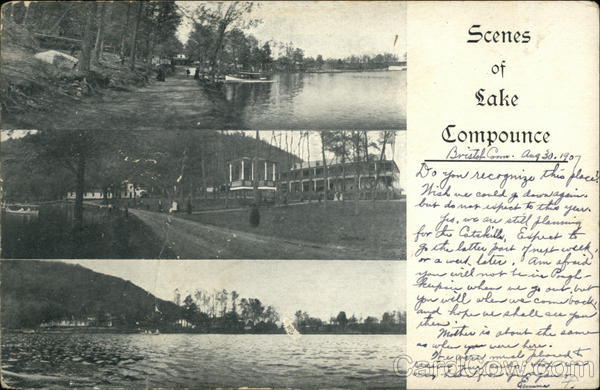 Scenes
of
Lake
Compounce
Bristol Conn. Aug 30, 1907
Do you recognize this place?
Wish we could go down again
but do not expect to this year.
Yes, we are still planning
for the Catskills. Expect to
go the latter part of next week
or a week later. Am afraid
you will not be in Pough-
keepsie when we go out, but
you will when we come back,
and hope we shall see you
then.
Mother is about the same
as when you were here.
We were much pleased to
CardCow.com
Emma